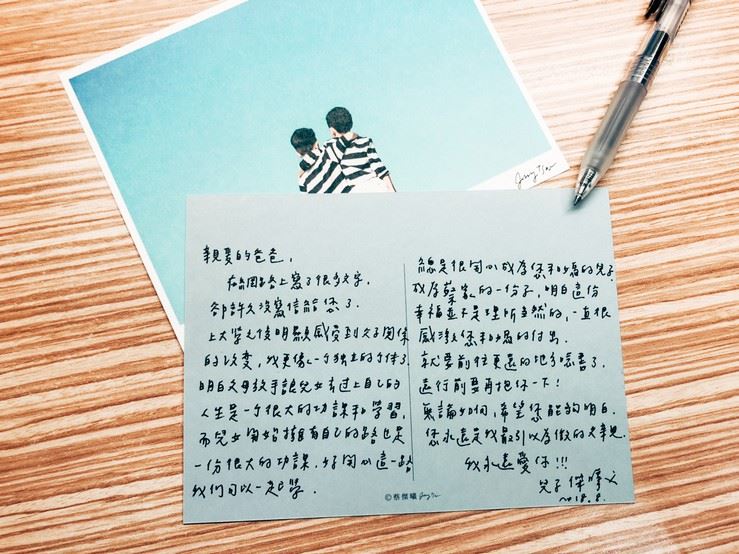 Jerry Tsai
親愛的爸爸,
在網路上寫了很多文字,
卻許久沒寫信給您了.
上大學之後明顯感受到父子關係
的改變,我更像一個獨立的個体了.
明白父母放手讓兒女去過上自己的
人生是一個很大的功課和學習,
而兒女開始擁有自己的路也是
一份很大的功課.好開心這一路
我們可以一起學.
總是很開心成為您和媽的兒子
成為蔡家的一份子,明白這份
幸福並不是理所当然的,一直很
感激您和媽的付出.
就要前往更遠的地方唸書了.
遠行前要再抱你一下!
無論如何,希望您能夠明白.
您永遠是我最引以為傲的父親.
我永遠愛你!!!
兒子 傑曦 父
2018.8.
©蔡傑曦